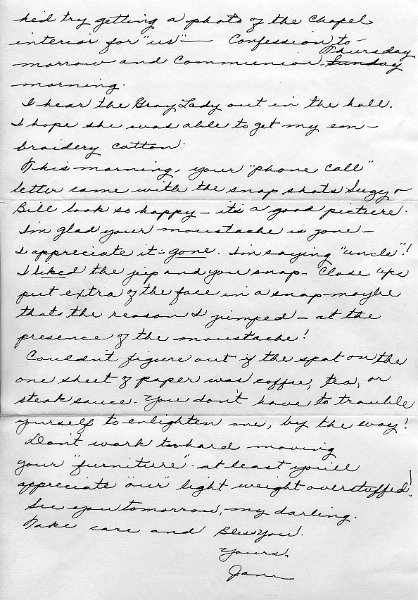 he'd try getting a photo of the Chapel
interior for "us" — Confession to-
morrow and Communion Sunday Thursday
morning.
I hear the Gray Lady out in the hall.
I hope she was able to get my em-
broidery cotton.
This morning, your "phone call"
letter came with the snap shots Suzy &
Bill look so happy — it's a good picture.
I'm glad your moustache is gone —
I appreciate it - gone. I'm saying "uncle"!
I liked the jeep and you snap - Close ups
put extra of the face in a snap - maybe
that the reason I jumped — at the
presence of the moustache!
Couldn't figure out if the spot on the
one sheet of paper was coffee, tea, or
steak sauce. You don't have to trouble
yourself to enlighten me, by the way!
Don't work too hard moving
your "furniture". at least you'll
appreciate "our" light weight overstuffed!
See you tomorrow, my darling.
Take care and Bless You.
Yours,
Jane